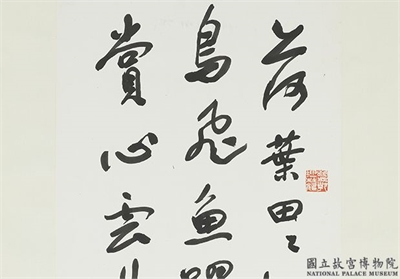 荷葉田〻
鳥飛魚躍
賞心雲
國立故宮博物院
NATIONAL PALACE MUSEUM